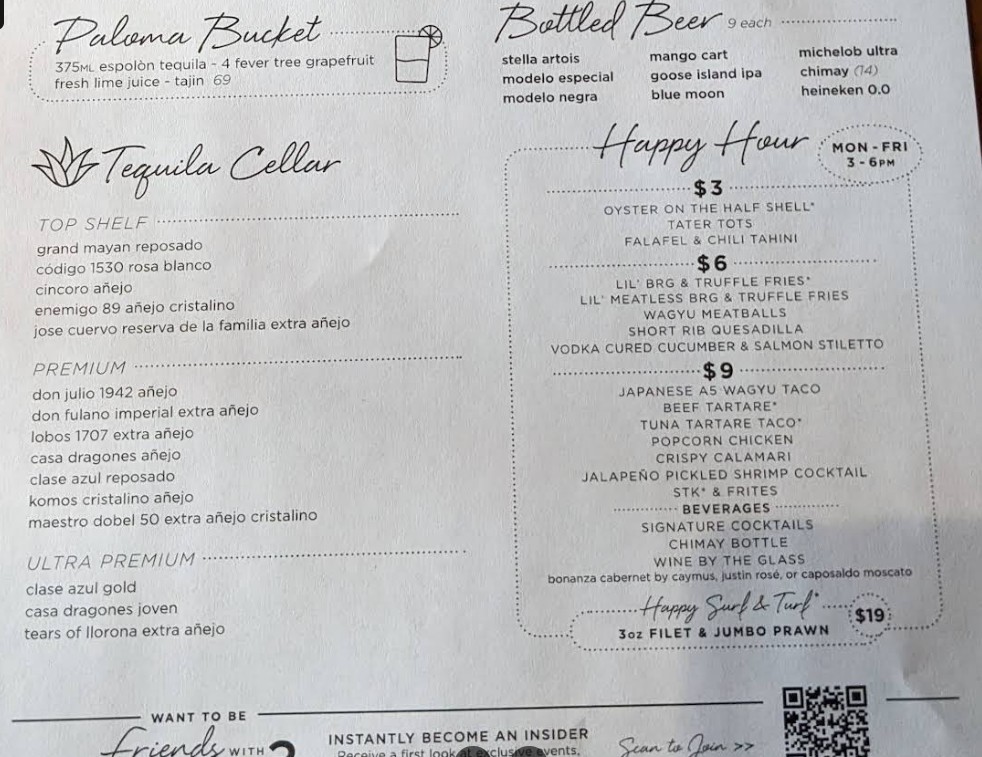 Paloma Bucket
375ML espolòn tequila - 4 fever tree grapefruit
fresh lime juice - tajin 69
Tequila Cellar
TOP SHELF
grand mayan reposado
código 1530 rosa blanco
cincoro añejo
enemigo 89 añejo cristalino
jose cuervo reserva de la familia extra añejo
PREMIUM
don julio 1942 añejo
don fulano imperial extra añejo
lobos 1707 extra añejo
casa dragones añejo
clase azul reposado
komos cristalino añejo
maestro dobel 50 extra añejo cristalino
ULTRA PREMIUM
clase azul gold
casa dragones joven
tears of llorona extra añejo
Bottled Beer 9 each
stella artois
modelo especial
modelo negra
mango cart
goose island ipa
blue moon
michelob ultra
chimay (14)
heineken 0.0
Happy Hour
MON - FRI
3 - 6PM
$3
OYSTER ON THE HALF SHELL*
TATER TOTS
FALAFEL & CHILI TAHINI
$6
LIL' BRG & TRUFFLE FRIES*
LIL' MEATLESS BRG & TRUFFLE FRIES
WAGYU MEATBALLS
SHORT RIB QUESADILLA
VODKA CURED CUCUMBER & SALMON STILETTO
$9
JAPANESE A5 WAGYU TACO
BEEF TARTARE*
TUNA TARTARE TACO*
POPCORN CHICKEN
CRISPY CALAMARI
JALAPEÑO PICKLED SHRIMP COCKTAIL
STK* & FRITES
BEVERAGES
SIGNATURE COCKTAILS
CHIMAY BOTTLE
WINE BY THE GLASS
bonanza cabernet by caymus, justin rosé, or caposaldo moscato
Happy Surf & Turf*
$19
3oz FILET & JUMBO PRAWN
WANT TO BE
friends WITH
INSTANTLY BECOME AN INSIDER
Receive a first look at exclusive events,
Scan to Join >>